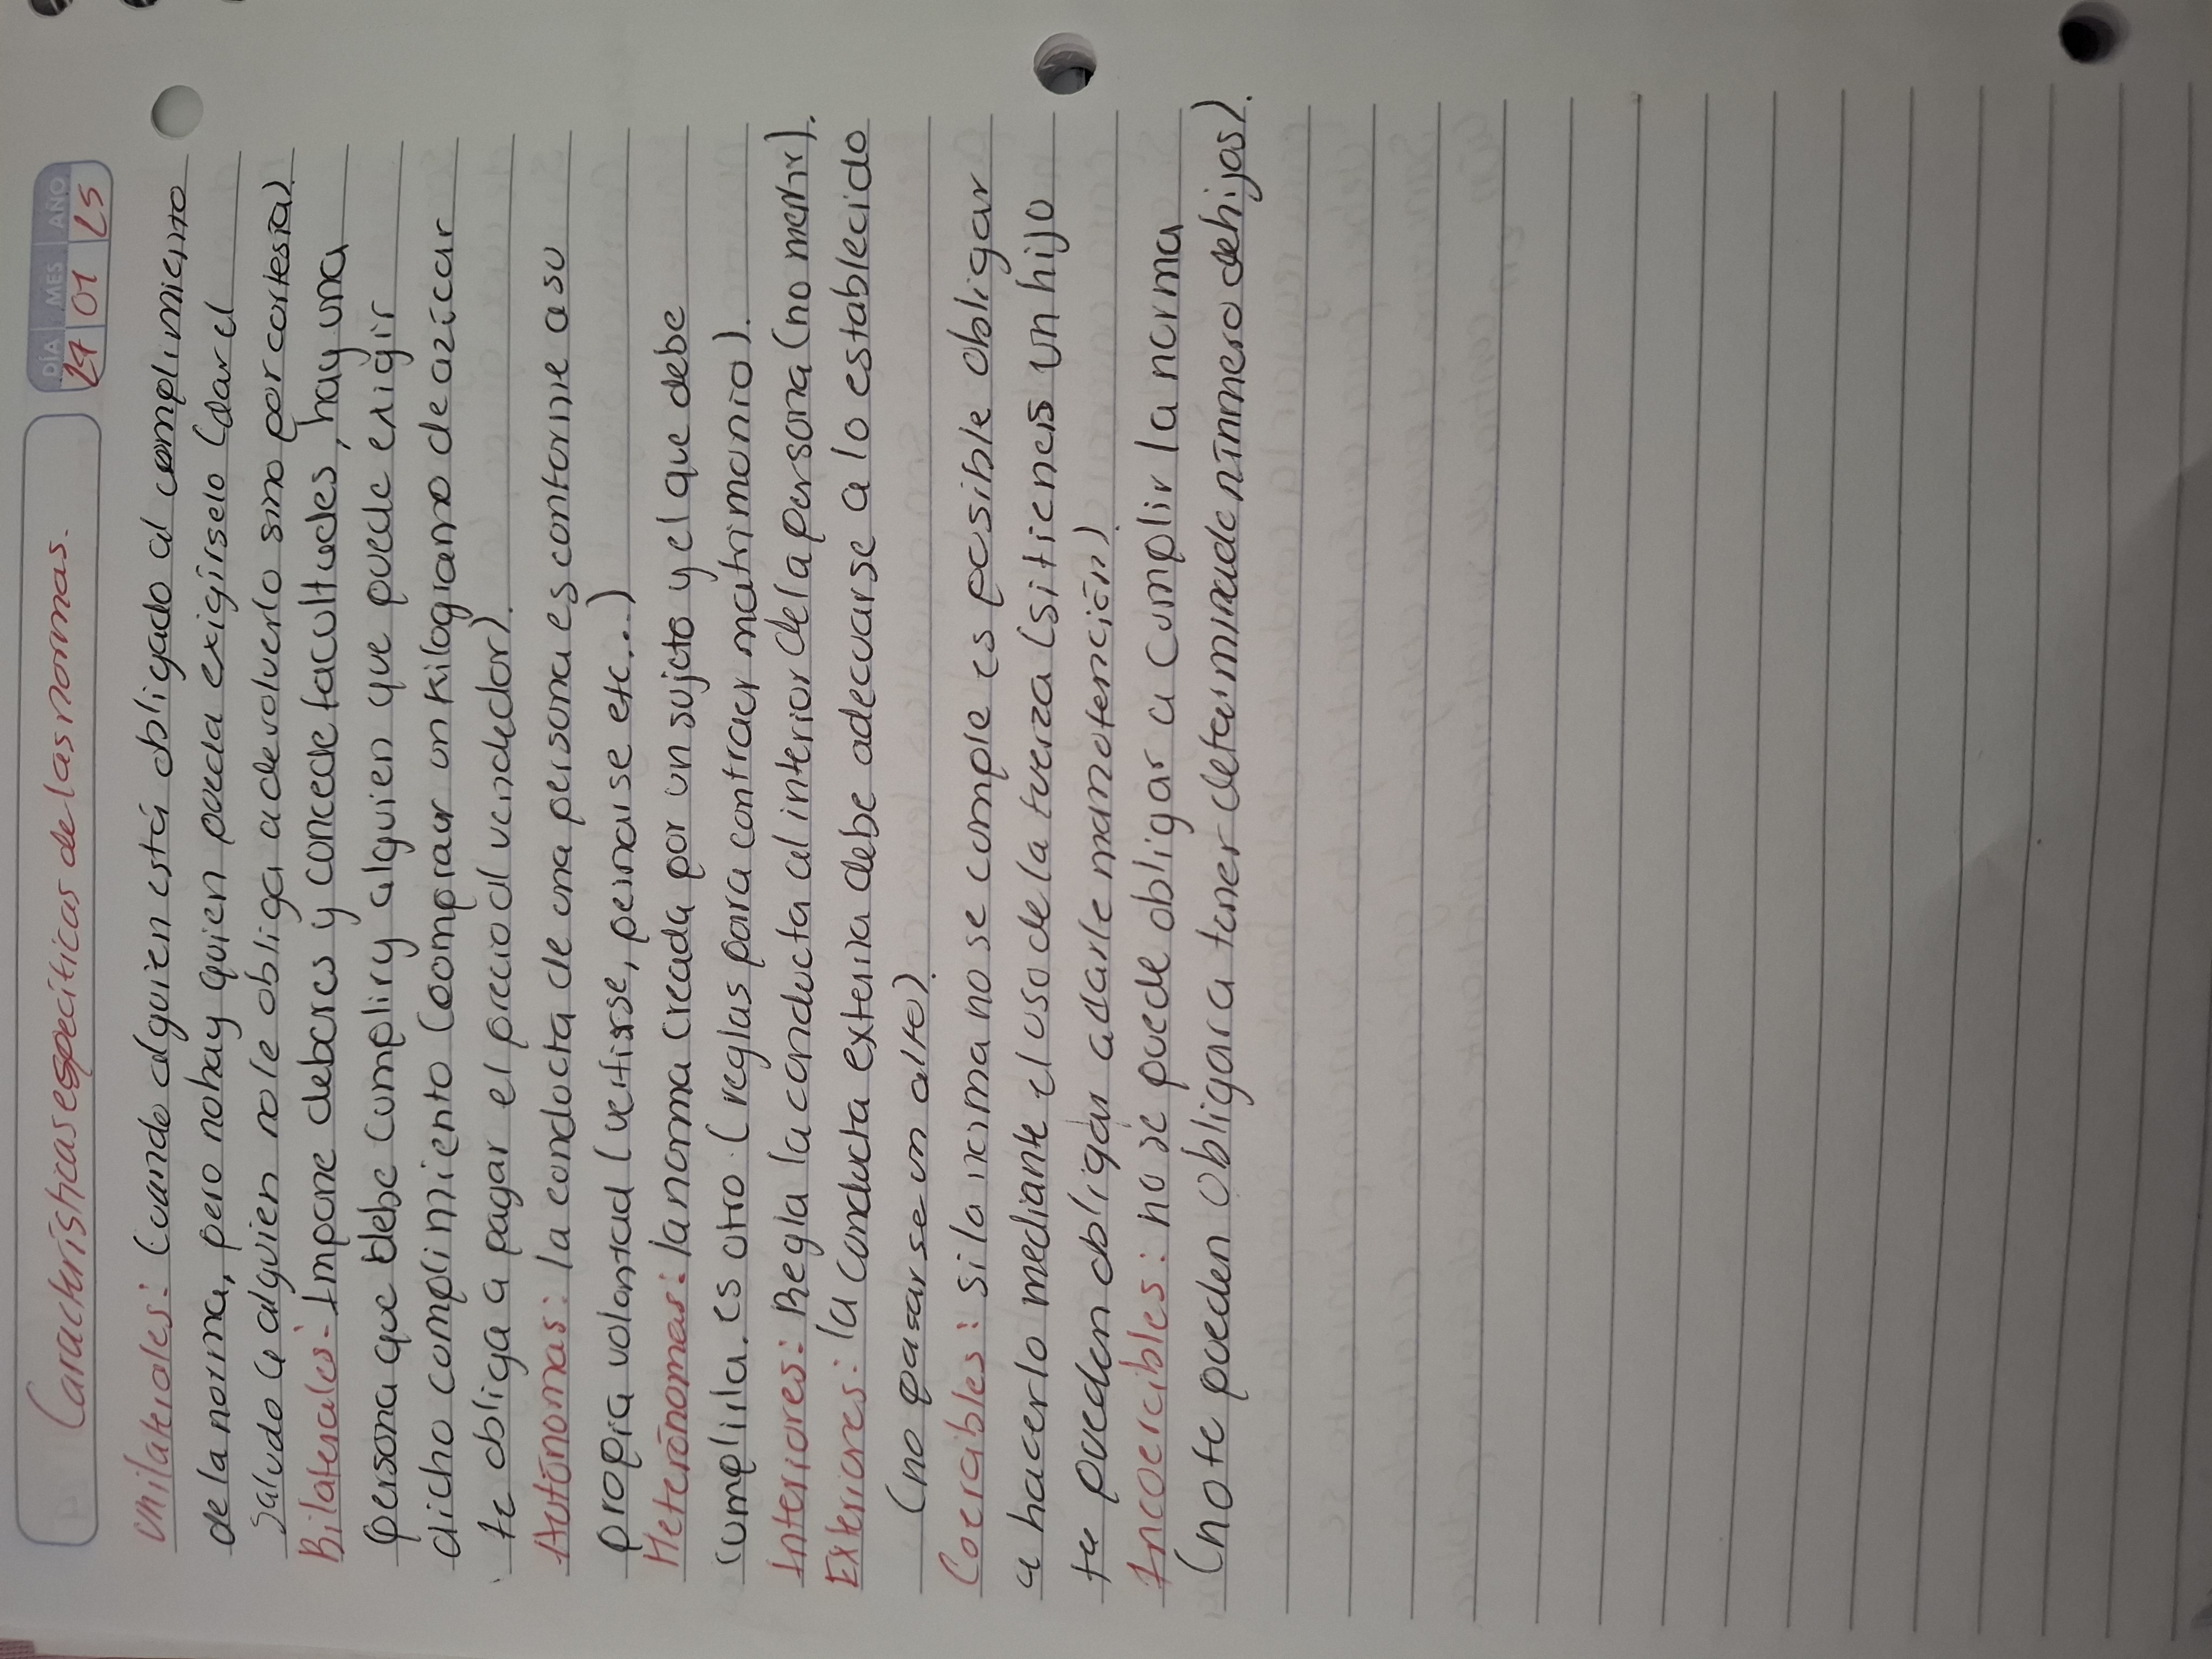 Características específicas de las normas.
DÍA MES AÑO
29 01 25
Unilaterales: Cuando alguien está obligado al cumplimiento
de la norma, pero no hay quien pueda exigírselo (dar el
saludo a alguien no le obliga a devolverlo sino por cortesía)
Bilaterales: Impone deberes y concede facultades, hay una
persona que debe cumplir y alguien que puede exigir
dicho cumplimiento (comprar un kilogramo de azúcar
te obliga a pagar el precio al vendedor).
Autónomas: la conducta de una persona es conforme a su
propia voluntad (vestirse, peinarse etc..)
Heterónomas: la norma creada por un sujeto y el que debe
cumplirla. es otro. (reglas para contraer matrimonio).
Interiores: Regla la conducta al interior de la persona (no mentir).
Exteriores: la conducta externa debe adecuarse a lo establecido
(no pasarse un alto).
Coercibles: si la norma no se cumple es posible obligar
a hacerlo mediante el uso de la fuerza (si tienes un hijo
te pueden obligar a darle manotención).
Incoercibles: no se puede obligar a cumplir la norma
(no te pueden obligar a tener determinado número de hijos).